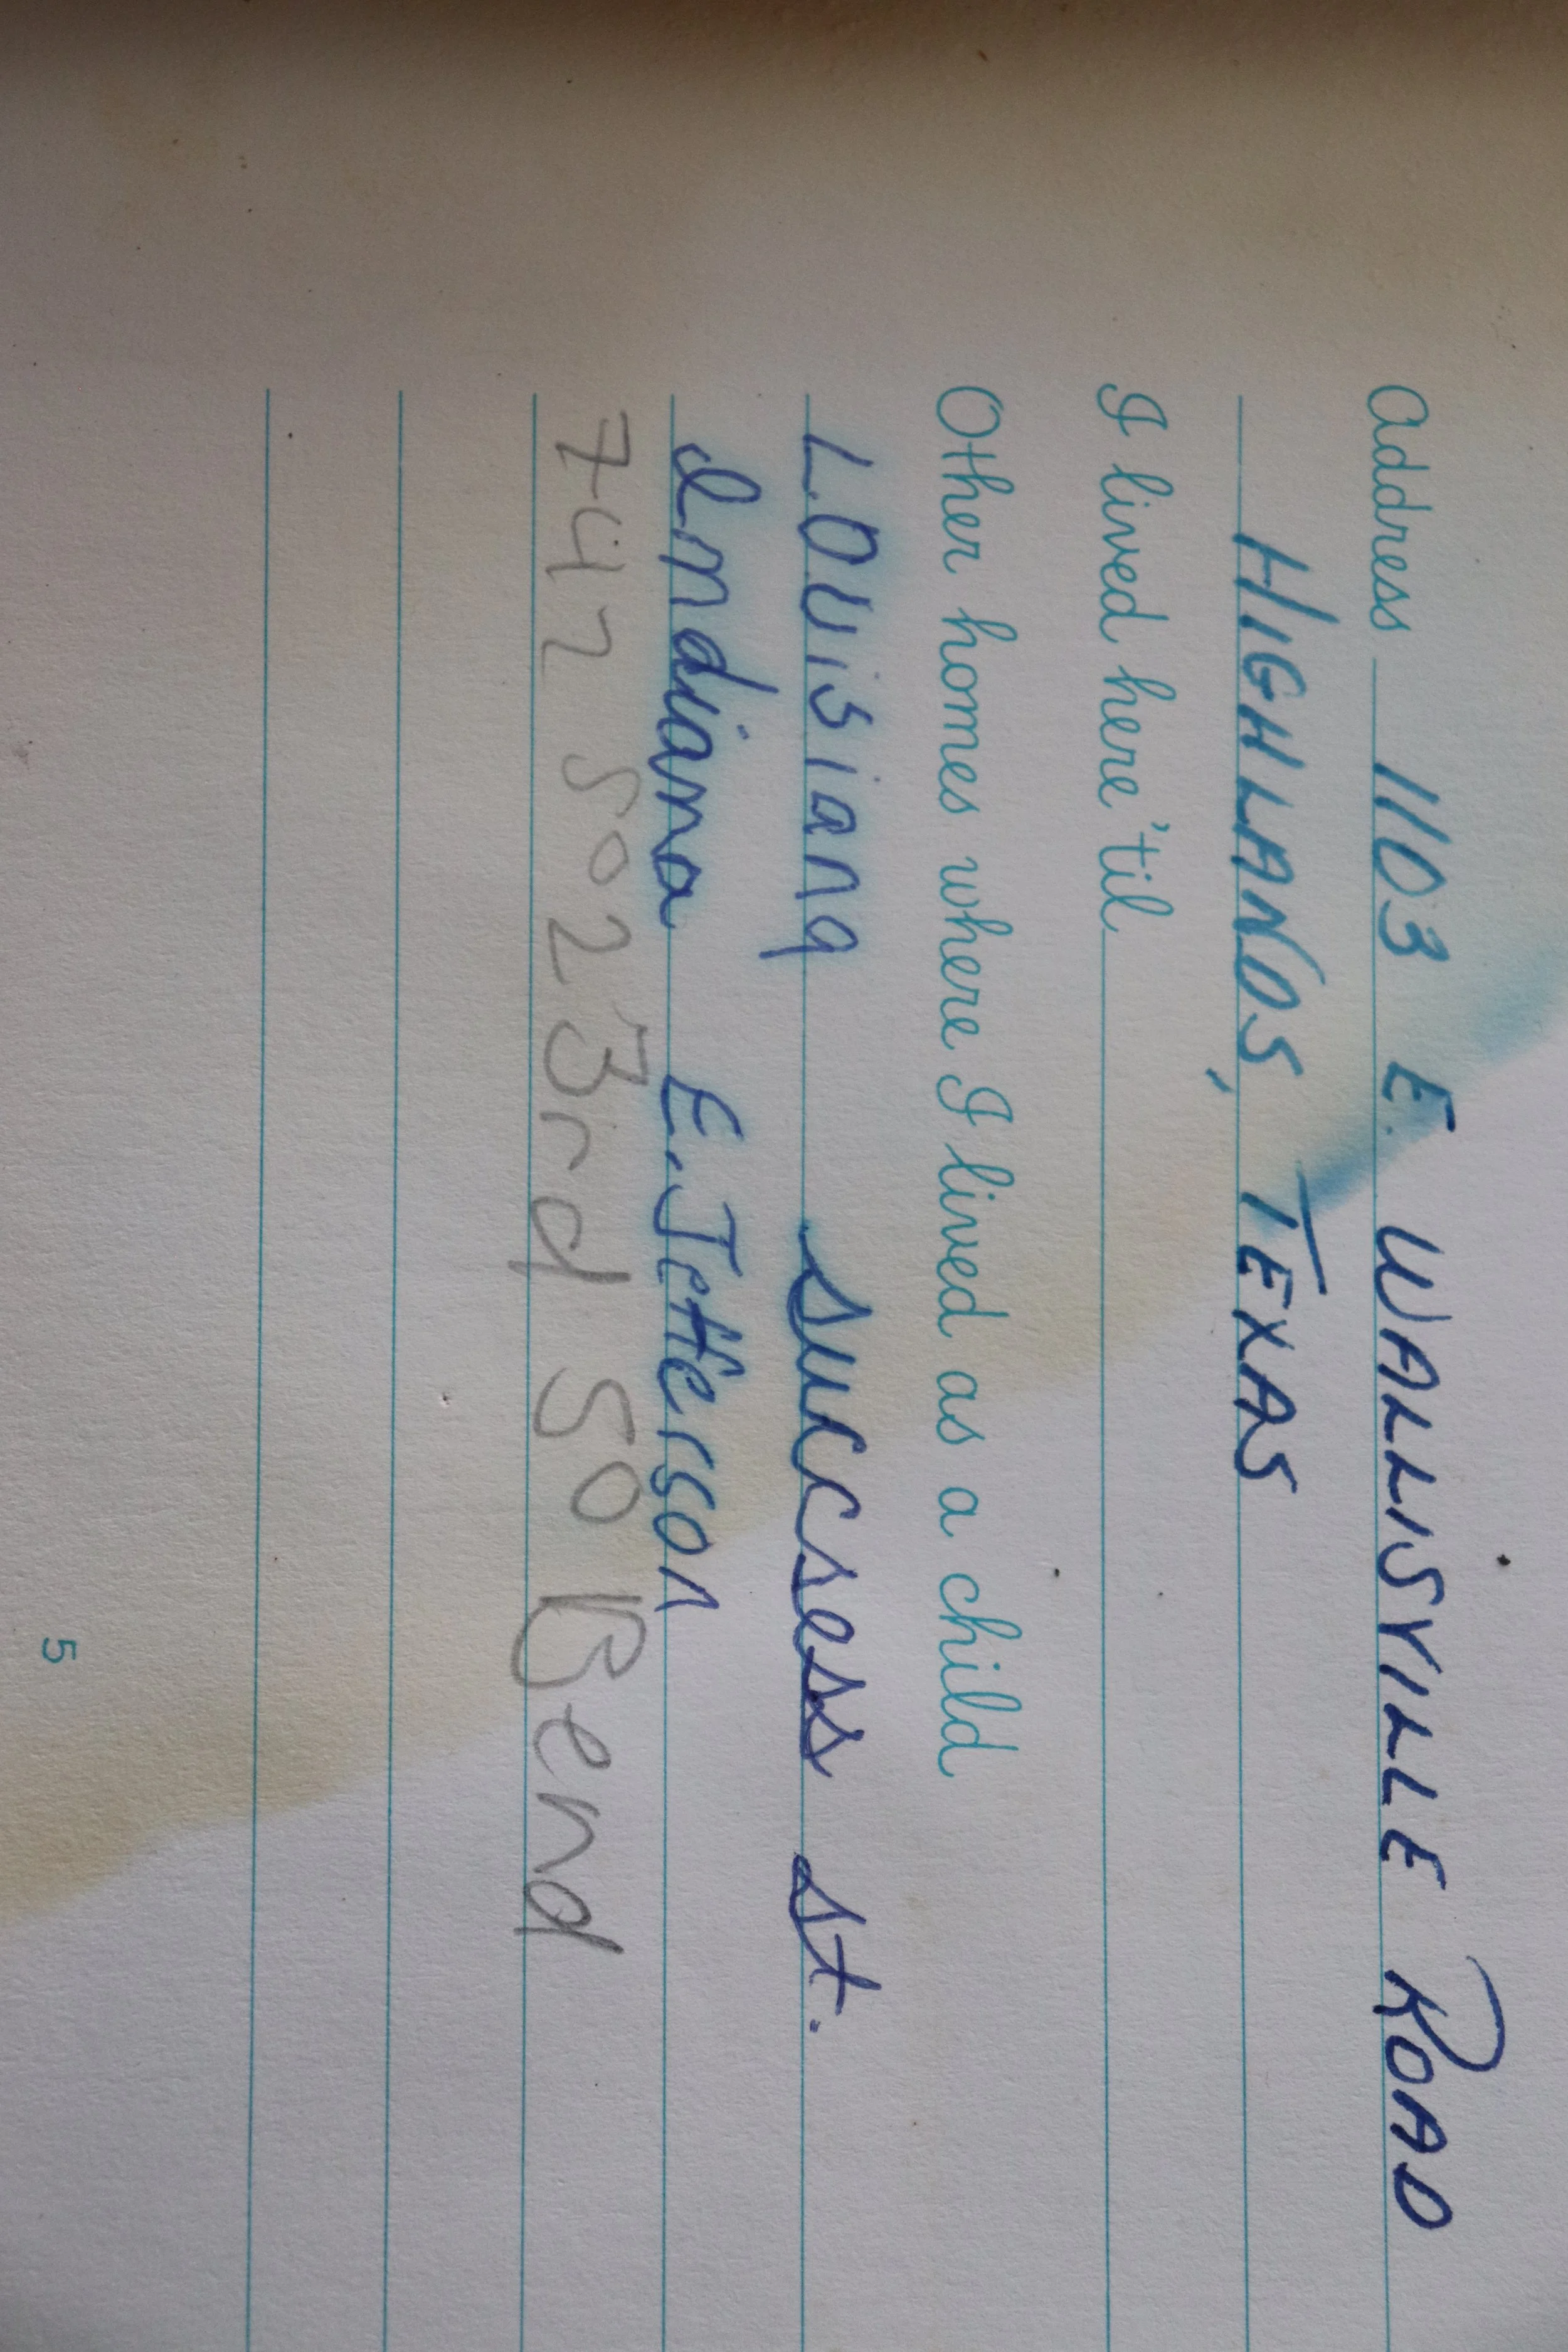 Address 1103 E. WALLISVILLE ROAD
HIGHLANDS, TEXAS
I lived here 'til
Other homes where I lived as a child
LOUisiana sucsess st.
Indiana E. Jefferson
747 So 23rd So Bend
5